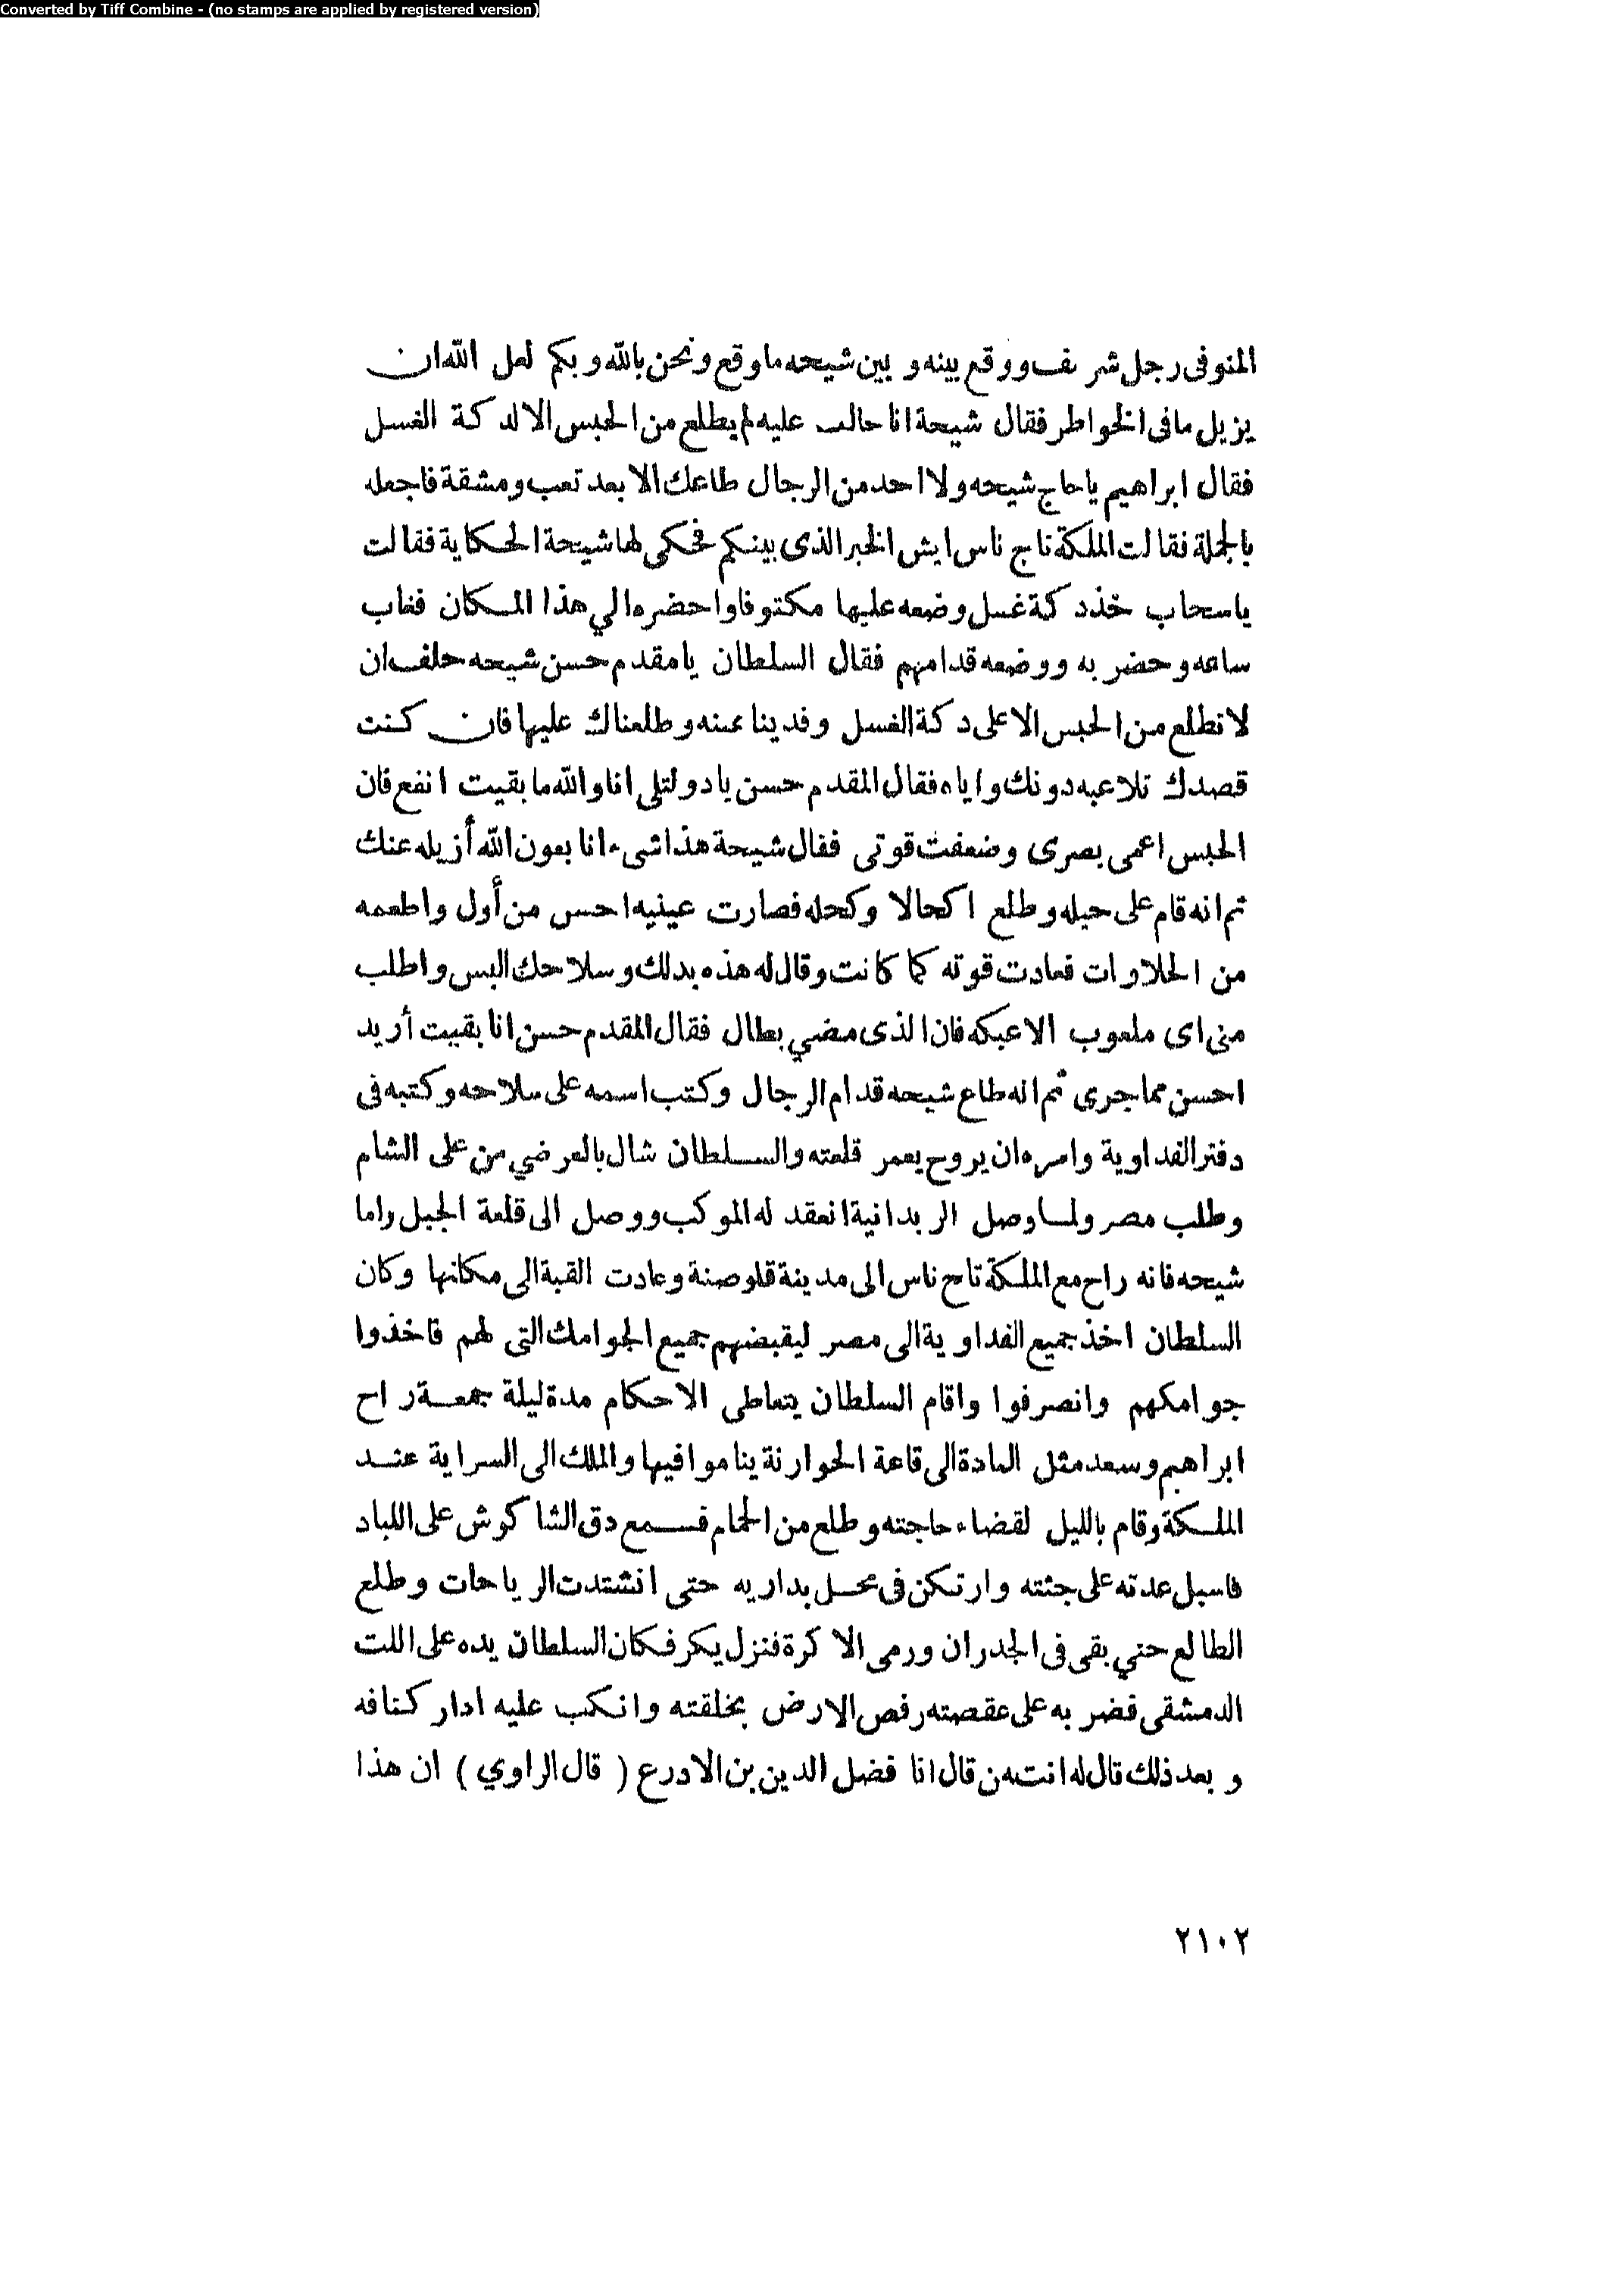 Converted by Tiff Combine - (no stamps are applied by registered version)
المنوفى رجل شريف ووقع بينه و بين شيحه ماوقع ونحن بالله و بكم لعل الله ان
يزيل مافى الخواطر فقال شيحة انا حالف عليه لم يطلع من الحبس الا لدكة الغسل
فقال ابراهيم ياحاج شيحه ولا احد من الرجال طاعك الا بعد تعب ومشقة فاجعله
بالجملة فقالت الملكة تاج ناس ايش الخبر الذى بينكم فحكى لها شيحة الحكاية فقالت
ياسحاب خذ دكة غسل وضعه عليها مكتوفا واحضره الي هذا المكان فغاب
ساعه وحضر به ووضعه قدامهم فقال السلطان يا مقدم حسن شيحه حلف ان
لا تطلع من الحبس الا على دكة الغسل وفدينا يمينه وطلعناك عليها فان كنت
قصدك تلاعبه دونك واياه فقال المقدم حسن يا دولتلى انا والله ما بقيت انفع فان
الحبس اعمى بصرى وضعفت قوتى فقال شيحة هذا شىء انا بعون الله أزيله عنك
ثم انه قام على حيله وطلع اكحالا وكحله فصارت عينيه احسن من أول واطعمه
من الحلاوات فعادت قوته كما كانت وقال له هذه بدلك وسلاحك البس واطلب
منى اى ملعوب الاعبكه فان الذى مضي بطال فقال المقدم حسن انا بقيت أريد
احسن مما جرى ثم انه طاع شيحه قدام الرجال وكتب اسمه على سلاحه وكتبه فى
دفتر الفداوية وامره ان يروح يعمر قلعته والسلطان شال بالعرضي من على الشام
وطلب مصر ولما وصل الريدانية انعقد له الموكب ووصل الى قلعة الجبل واما
شيحه فانه راح مع الملكة تاج ناس الى مدينة قلوصنة وعادت القبة الى مكانها وكان
السلطان اخذ جميع الفداوية الى مصر ليقبضهم جميع الجوامك التى لهم فاخذوا
جوامكهم وانصرفوا واقام السلطان يتعاطى الاحكام مدة ليلة جمعة راح
ابراهيم وسعد مثل العادة الى قاعة الحوارنة يناموا فيها والملك الى السراية عند
الملكة وقام بالليل لقضاء حاجته وطلع من الحمام فسمع دق الشاكوش على اللباد
فاسبل عدته على جثته وارتكن فى محل بداريه حتى انشتدت الرياحات وطلع
الطالع حتي بقى فى الجدران ورمى الاكرة فنزل يكر فكان السلطان يده على اللت
الدمشقى فضربه على عقصته رفص الارض بخلقته وانكب عليه ادار كتافه
و بعد ذلك قال له انت من قال انا فضل الدين بن الادرع ( قال الراوي ) ان هذا
٢١٠٢